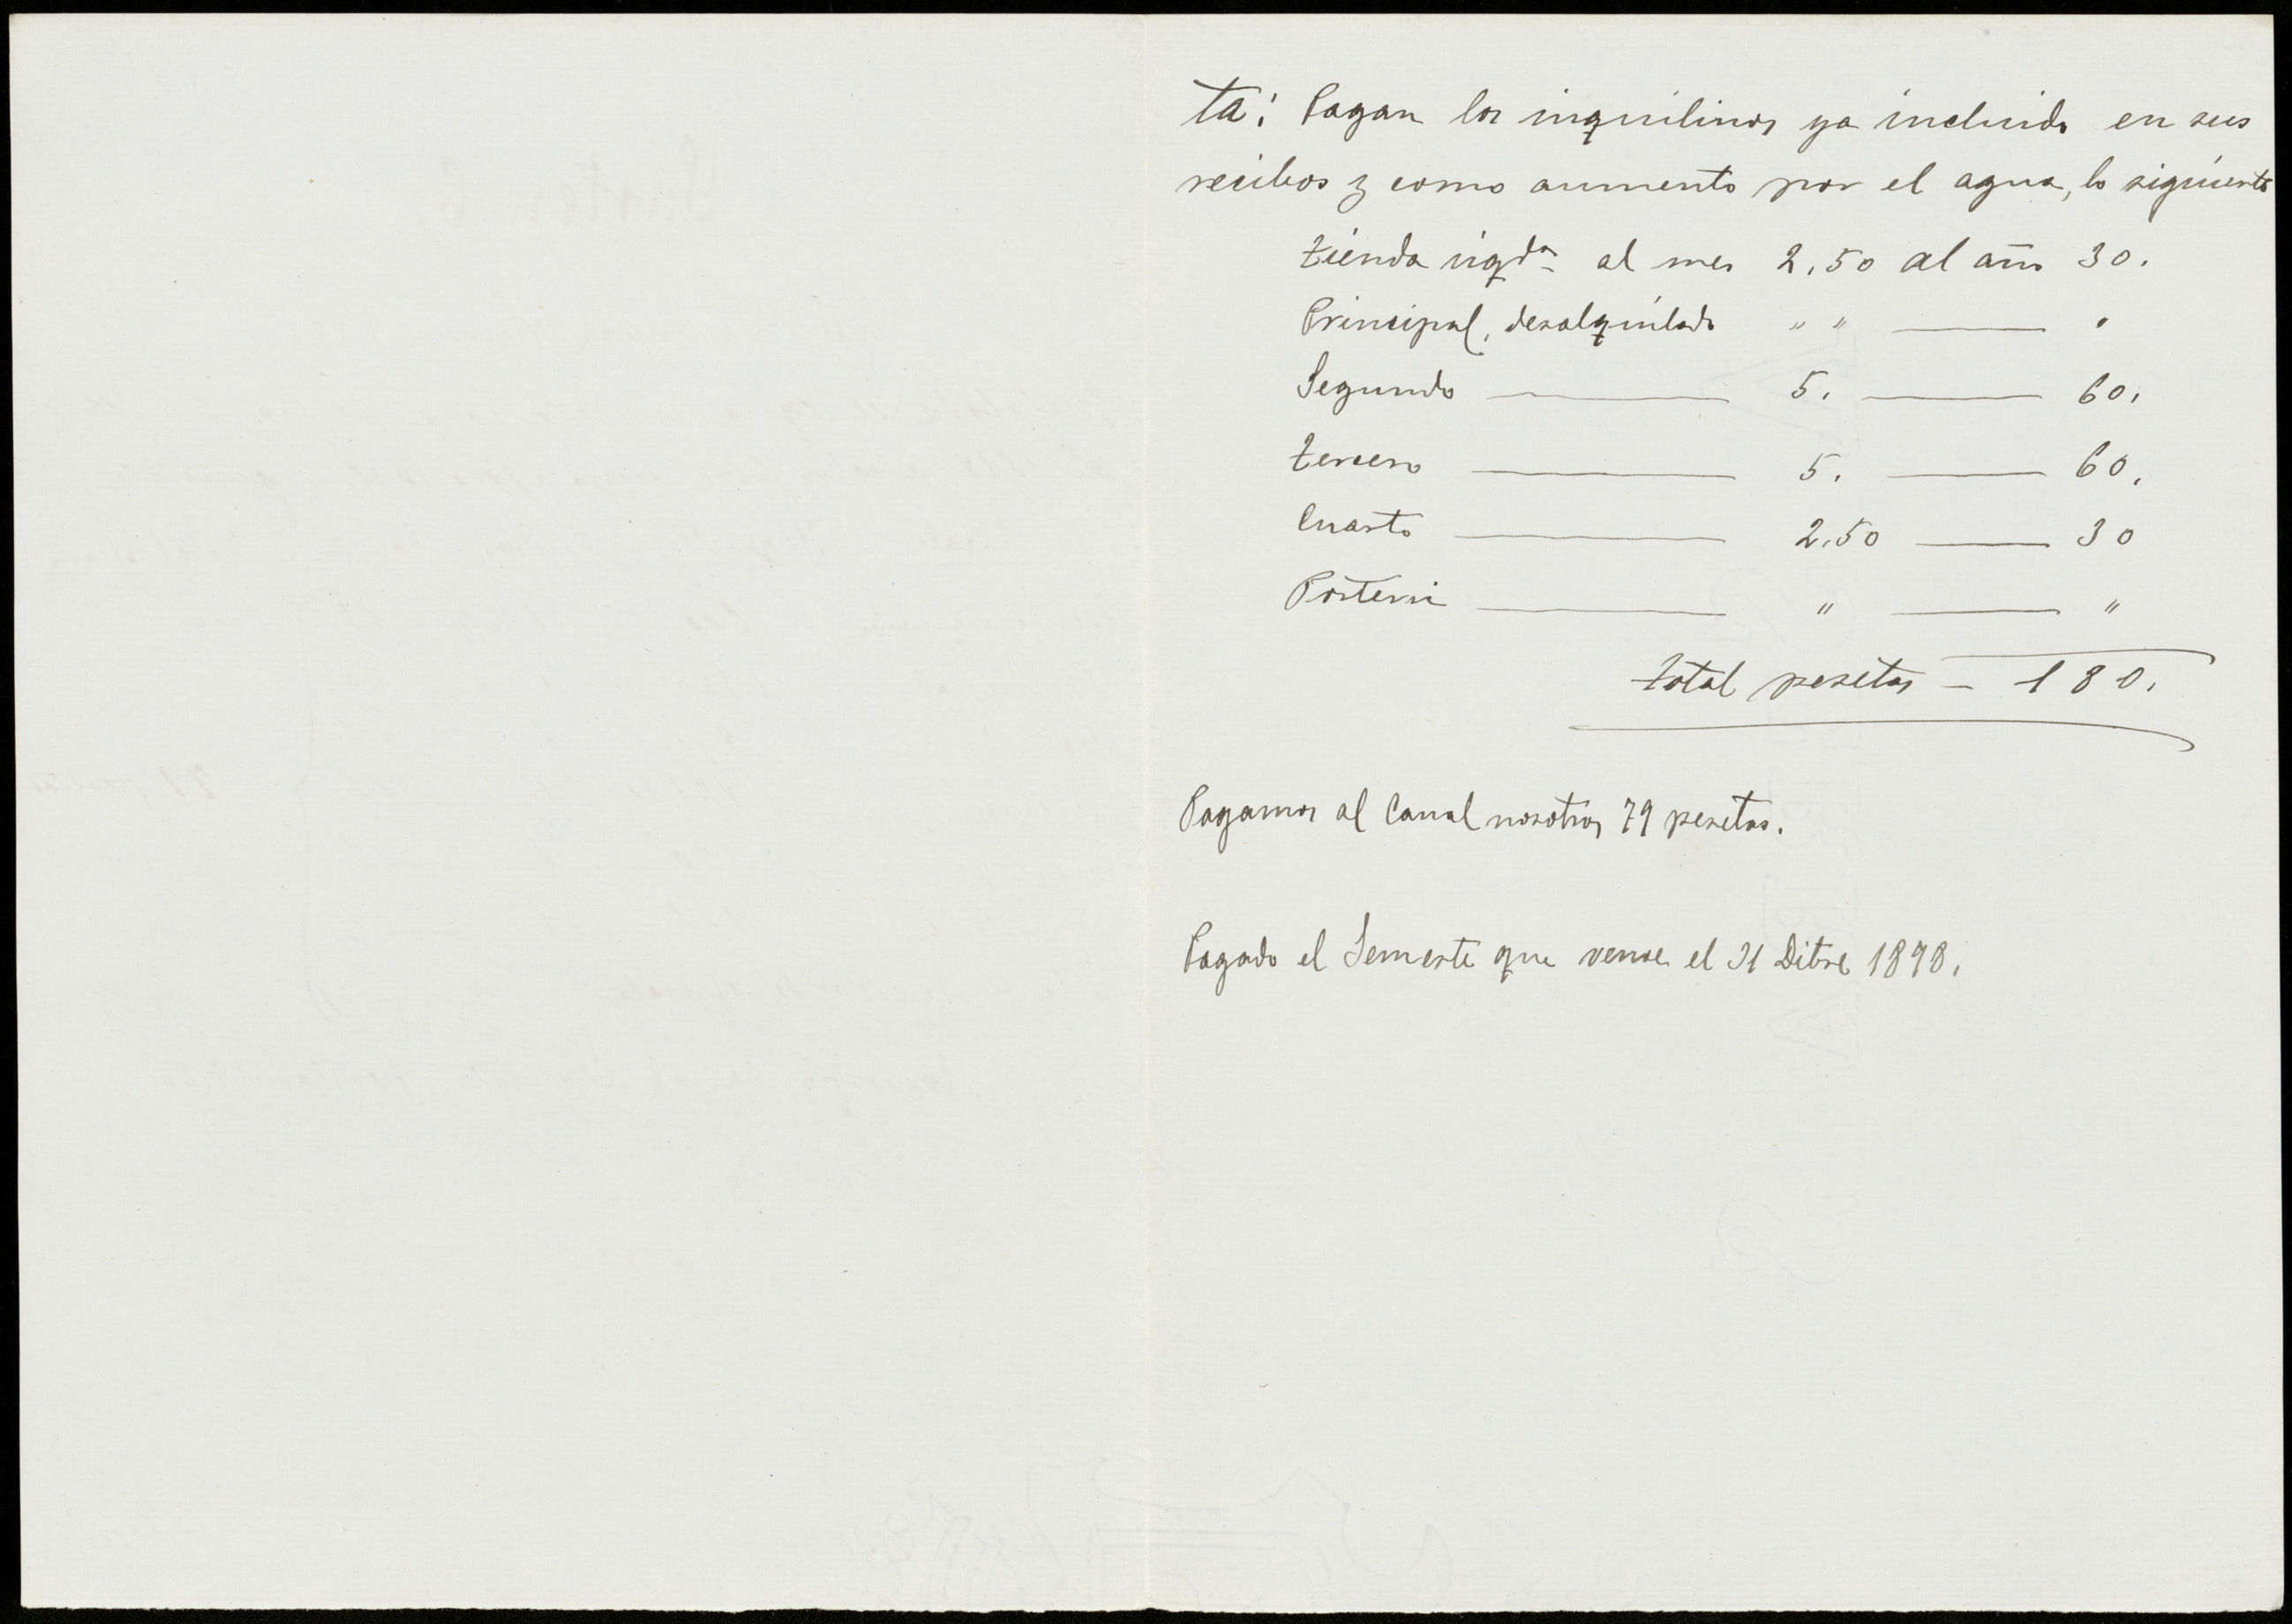 ta: Pagan los inquilinos ya incluido en sus
recibos y como aumento por el agua, lo siguiente
tienda izqda al mes 2,50 al año 30.
Principal, desalquilado " " —— "
Segundo —— 5. —— 60.
tercero —— 5. —— 60.
Cuarto —— 2.50 —— 30
Porteria —— " —— "
total pesetas — 180.
Pagamos al Canal nosotros 79 pesetas.
Pagado el Semestre que vence el 31 Dibre 1898.